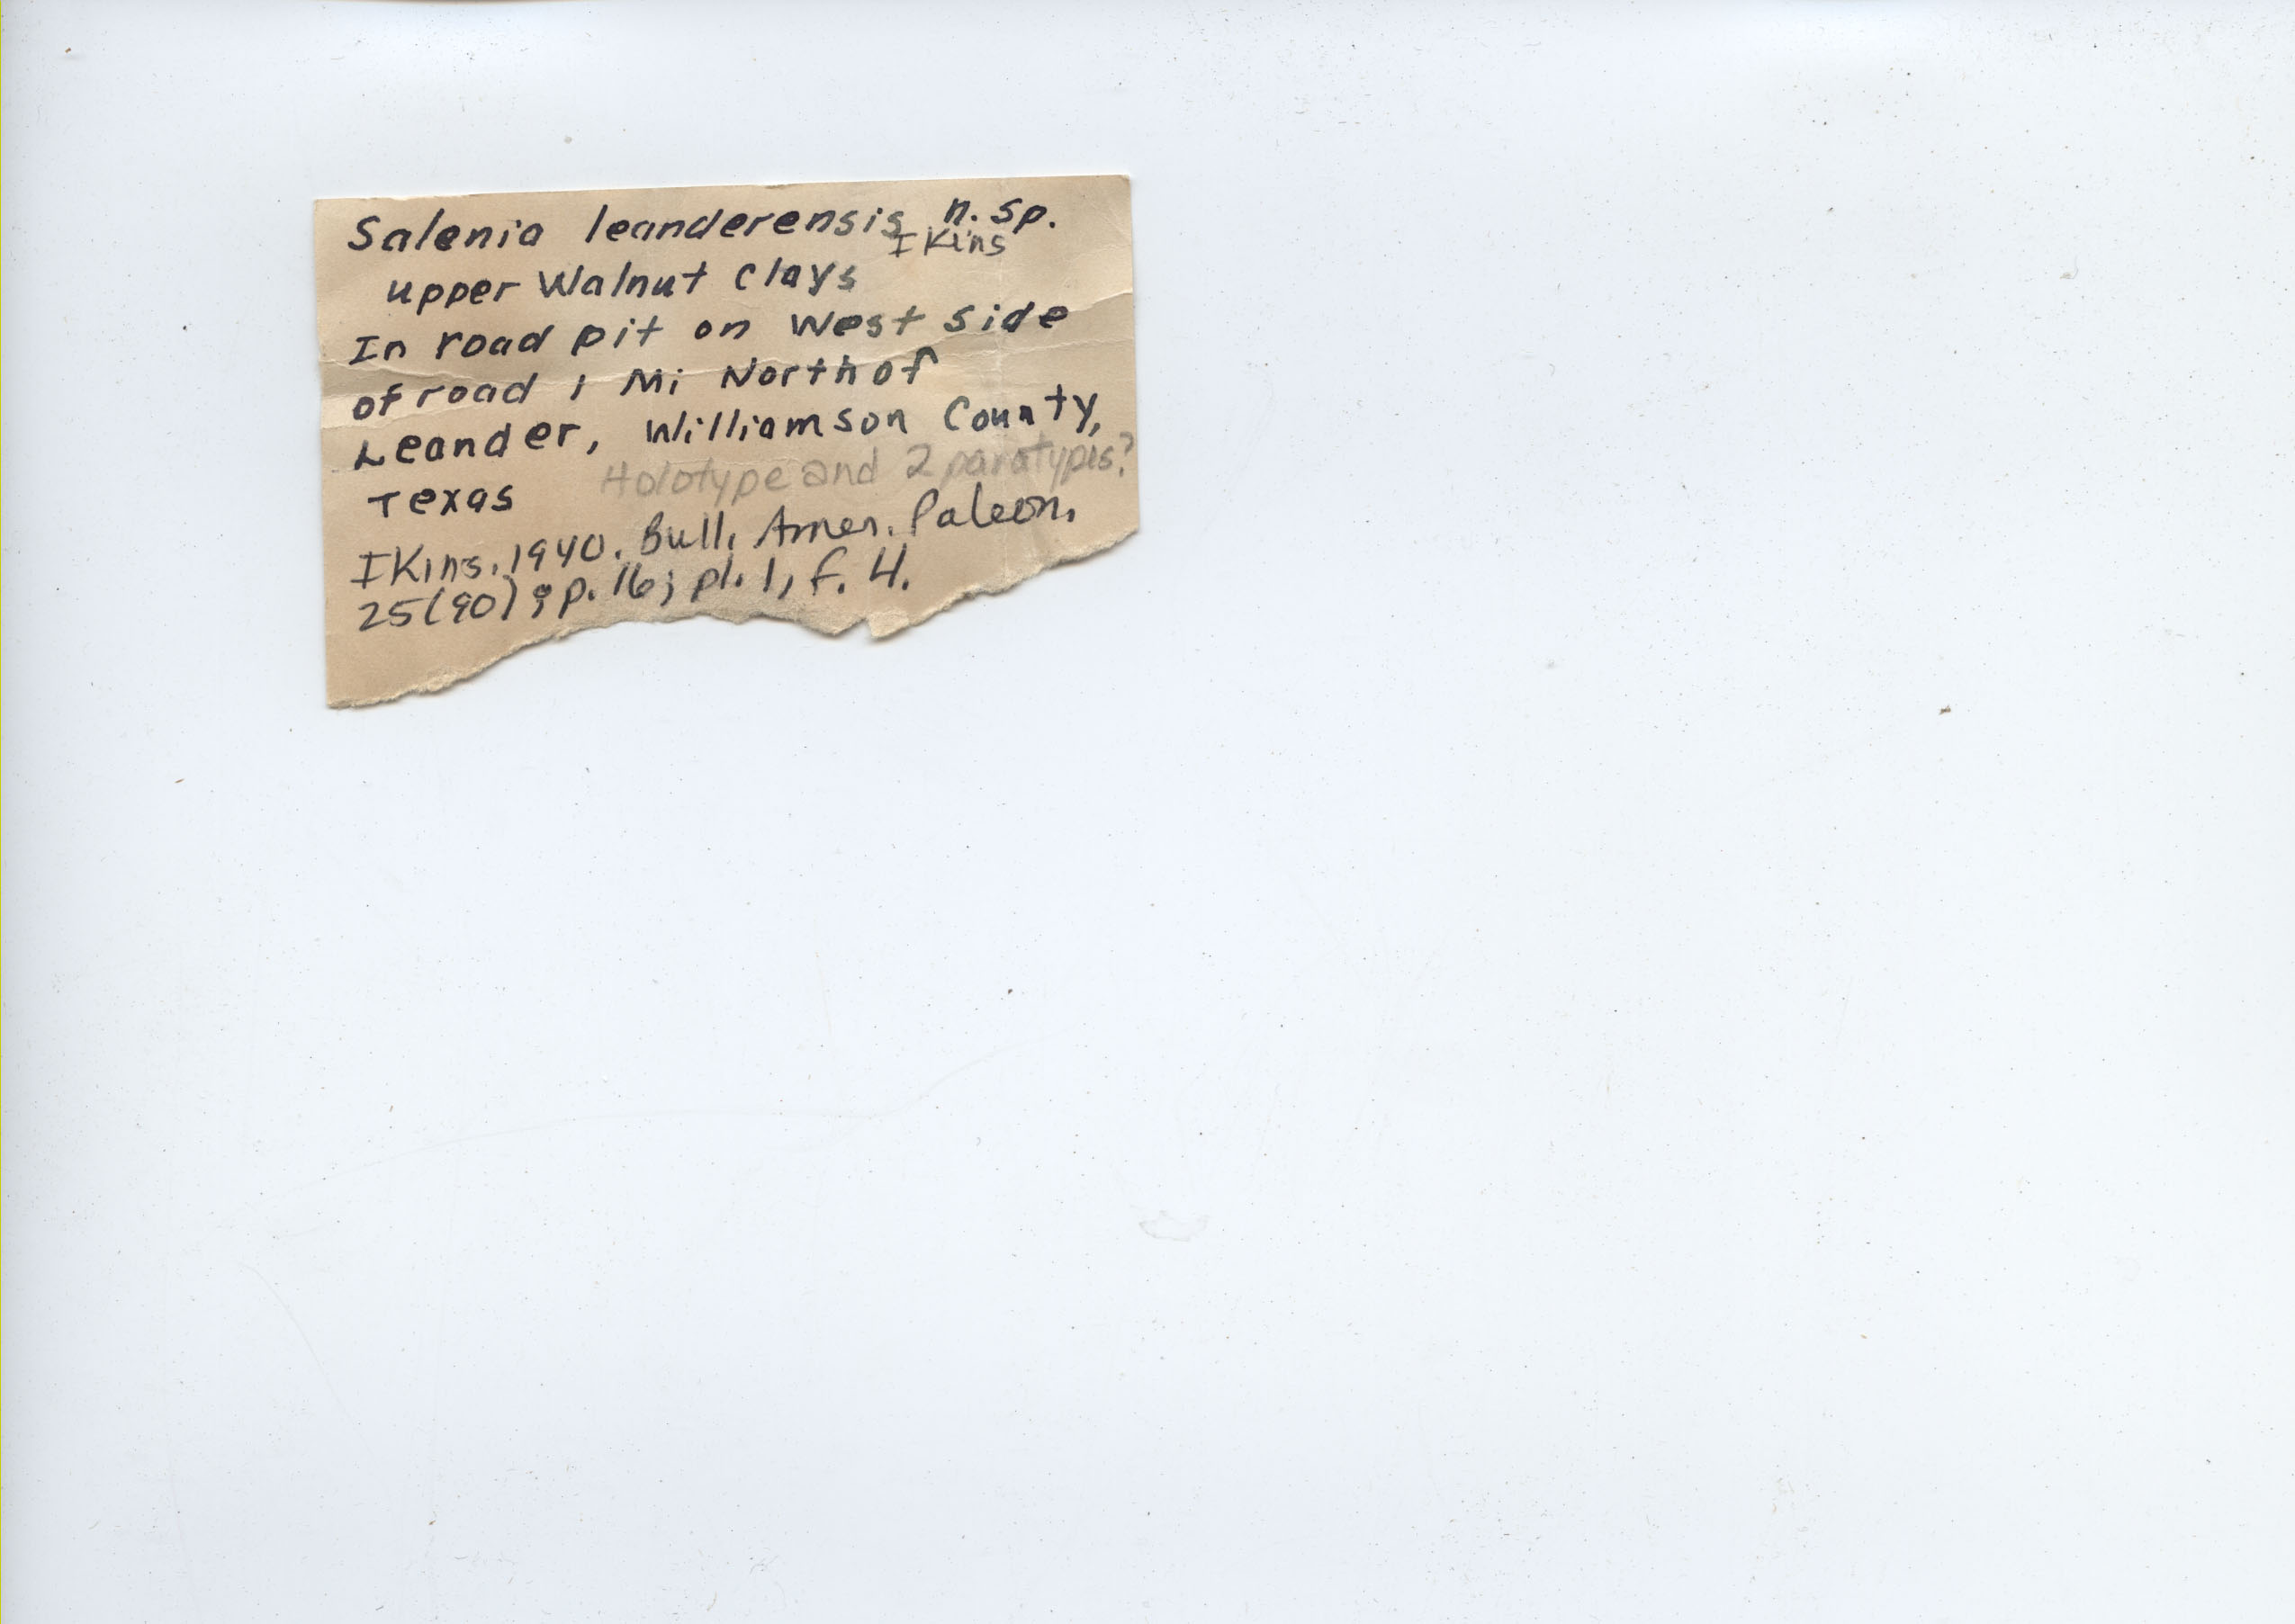 Salenia leanderensis n. sp.
Ikins
upper Walnut clays
In road pit on West side
of road 1 Mi North of
Leander, Williamson County,
Texas
Holotype and 2 paratypes?
Ikins. 1940. Bull. Amer. Paleon.
25(90); p. 16; pl. 1, f. 4.